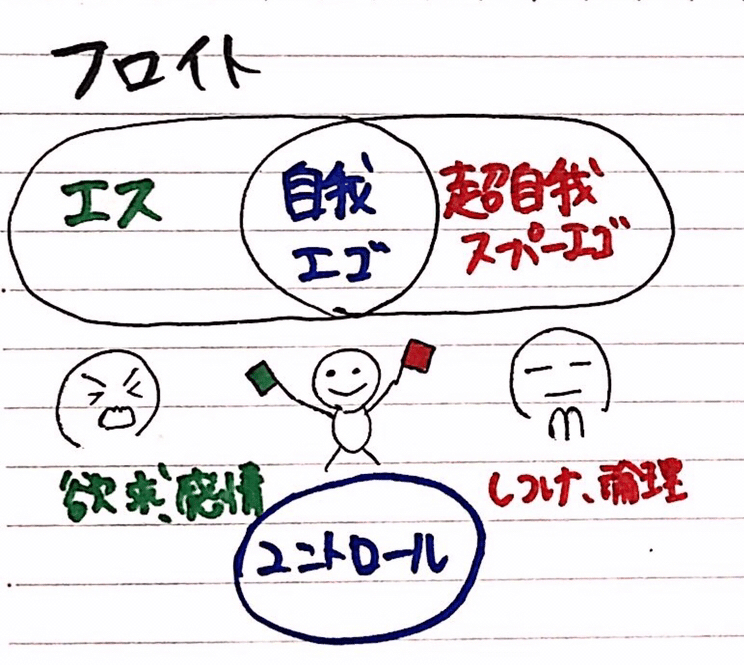 フロイト
エス
自我
エゴ
超自我
スパーエゴ
欲求、感情
コントロール
しつけ、論理